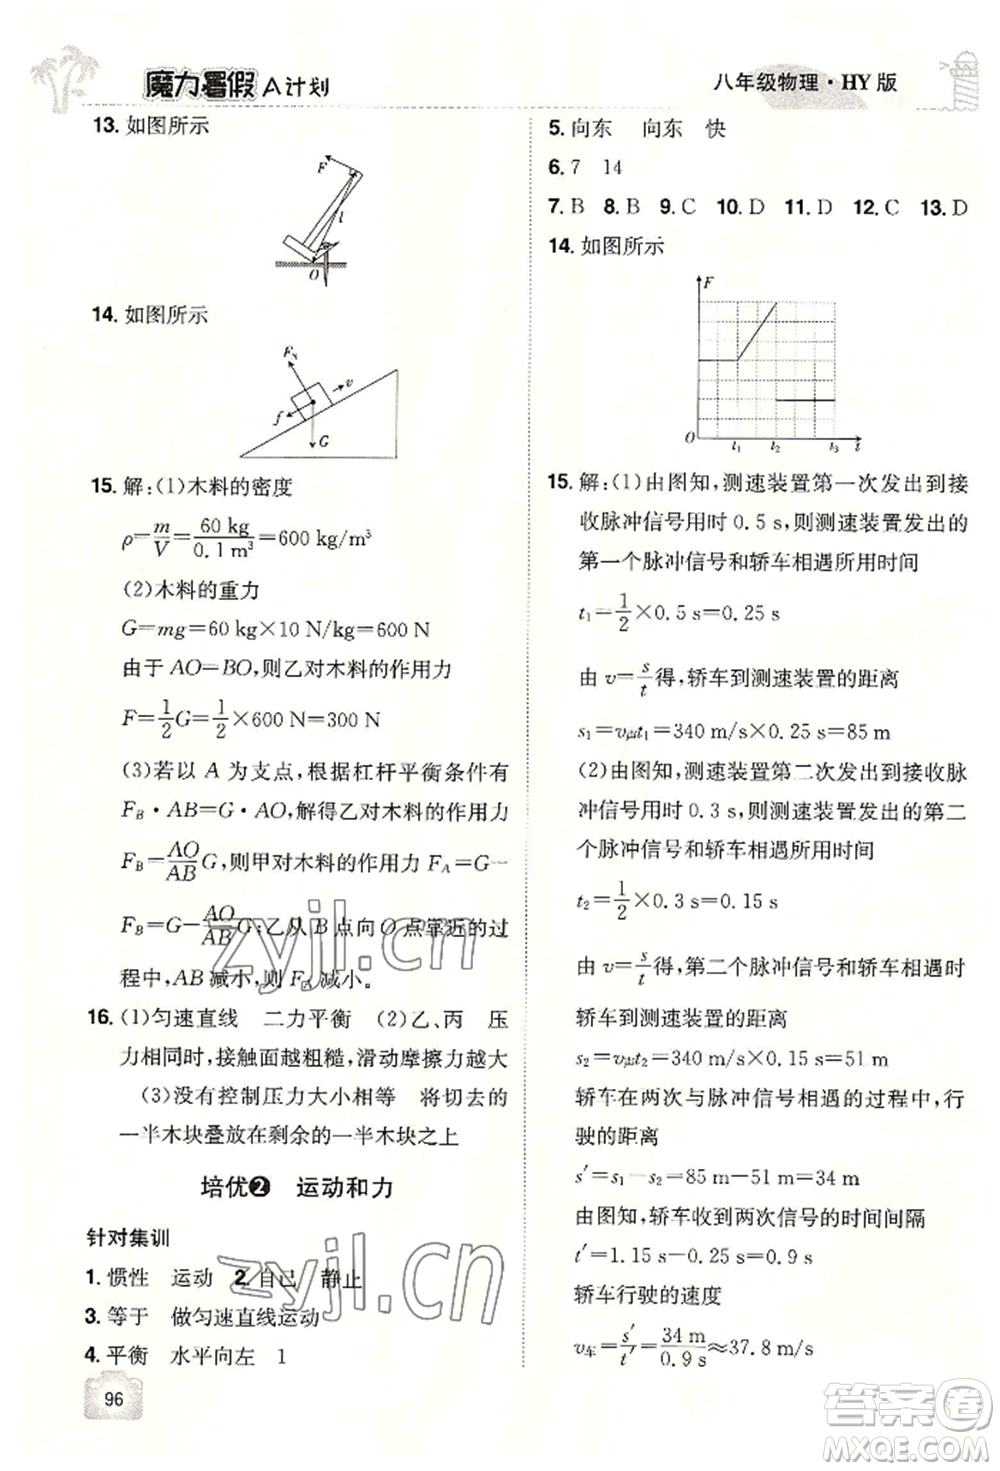 魔力暑假 A计划
八年级物理·HY版
13. 如图所示
F
l
O
14. 如图所示
F_N
v
f
G
15. 解:(1)木料的密度
ρ=m/V=60 kg/0.1 m³=600 kg/m³
(2)木料的重力
G=mg=60 kg×10 N/kg=600 N
由于 AO=BO,则乙对木料的作用力
F=1/2G=1/2×600 N=300 N
(3)若以 A 为支点,根据杠杆平衡条件有
F_B·AB=G·AO,解得乙对木料的作用力
F_B=AO/AB G,则甲对木料的作用力 F_A=G-
F_B=G-AO/AB G;乙从 B 点向 O 点靠近的过
程中,AB 减小,则 F_A 减小。
16. (1)匀速直线 二力平衡 (2)乙、丙 压
力相同时,接触面越粗糙,滑动摩擦力越大
(3)没有控制压力大小相等 将切去的
一半木块叠放在剩余的一半木块之上
培优❷ 运动和力
针对集训
1. 惯性 运动 2. 自己 静止
3. 等于 做匀速直线运动
4. 平衡 水平向左 1
96
5. 向东 向东 快
6. 7 14
7. B 8. B 9. C 10. D 11. D 12. C 13. D
14. 如图所示
F
O t₁ t₂ t₃ t
15. 解:(1)由图知,测速装置第一次发出到接
收脉冲信号用时 0.5 s,则测速装置发出的
第一个脉冲信号和轿车相遇所用时间
t₁=1/2×0.5 s=0.25 s
由 v=s/t得,轿车到测速装置的距离
s₁=v声t₁=340 m/s×0.25 s=85 m
(2)由图知,测速装置第二次发出到接收脉
冲信号用时 0.3 s,则测速装置发出的第二
个脉冲信号和轿车相遇所用时间
t₂=1/2×0.3 s=0.15 s
由 v=s/t得,第二个脉冲信号和轿车相遇时
轿车到测速装置的距离
s₂=v声t₂=340 m/s×0.15 s=51 m
轿车在两次与脉冲信号相遇的过程中,行
驶的距离
s′=s₁-s₂=85 m-51 m=34 m
由图知,轿车收到两次信号的时间间隔
t′=1.15 s-0.25 s=0.9 s
轿车行驶的速度
v车=s′/t′=34 m/0.9 s≈37.8 m/s
zyjl.cn
zyjl.cn
答案圈
MXQE.COM